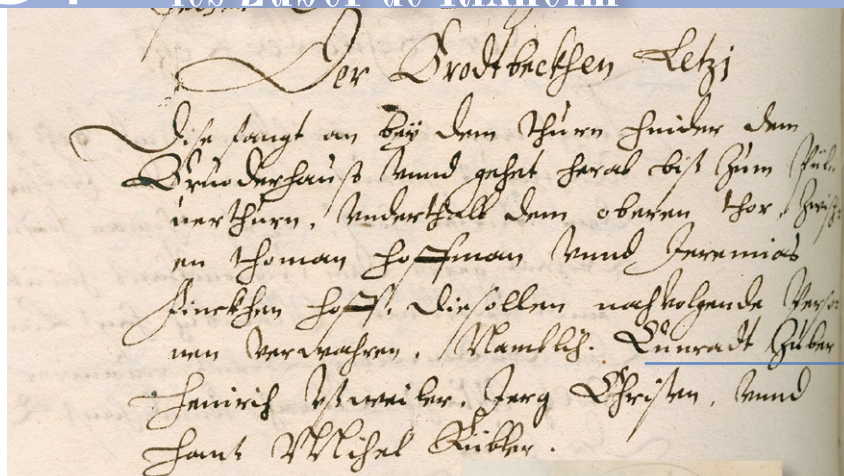 les Zuber de Rixheim
Der Brodtbeckhen Letzi
Dise fangt an beÿ dem Thurn hinder dem
Bruoderhauß vnnd gehet herab biß zum Pul-
uerthurn, vnderthalb dem oberen Thor, Zwisch-
en Thoman Hoffman vnnd Jeremias
Finckhen Hoff. Die sollen nachvolgende Perso-
nen verwahren, Namblich. Cunradt Zuber
Heinrich , Jerg Christen, vnnd
Hanß Michel Kübler.